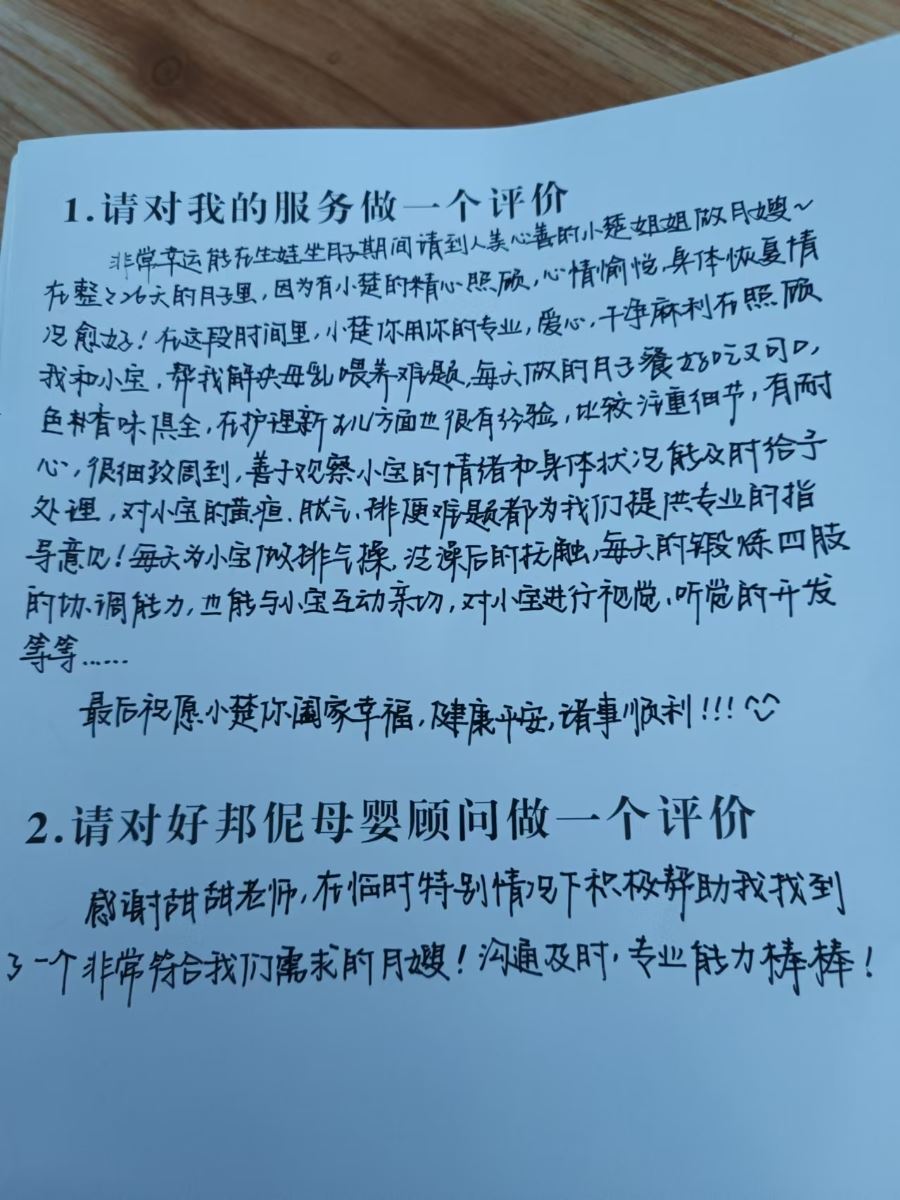 1.请对我的服务做一个评价
非常幸运能在生娃坐月子期间请到人美心善的小楚姐姐做月嫂~
在整整26天的月子里，因为有小楚的精心照顾，心情愉悦，身体恢复情
况愈好！在这段时间里，小楚你用你的专业，爱心，干净麻利在照顾
我和小宝，帮我解决母乳喂养难题，每天做的月子餐好吃又可口，
色香味俱全，在护理新生儿方面也很有经验，比较注重细节，有耐
心，很细致周到，善于观察小宝的情绪和身体状况能及时给予
处理，对小宝的黄疸、胀气、排便难题都为我们提供专业的指
导意见！每天为小宝做排气操，洗澡后的抚触，每天的锻炼四肢
的协调能力，也能与小宝互动亲切，对小宝进行视觉、听觉的开发
等等……
最后祝愿小楚你阖家幸福，健康平安，诸事顺利!!!
2.请对好邦伲母婴顾问做一个评价
感谢甜甜老师，在临时特别情况下积极帮助我找到
了一个非常符合我们需求的月嫂！沟通及时，专业能力棒棒！